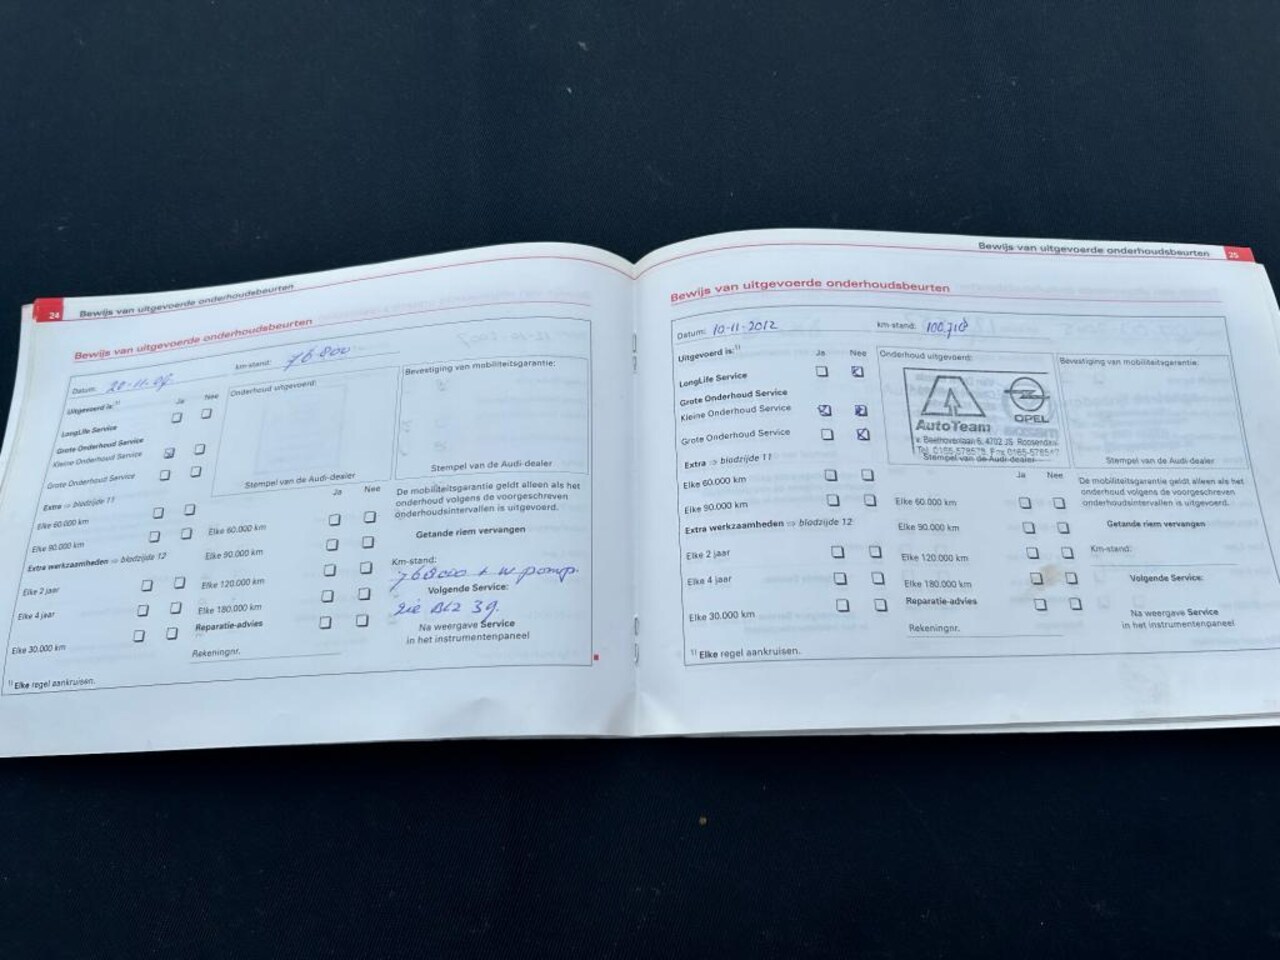 24 Bewijs van uitgevoerde onderhoudsbeurten
Bewijs van uitgevoerde onderhoudsbeurten
Datum: 20-11-09 km-stand: 76.800
Uitgevoerd is:¹⁾ Ja Nee
LongLife Service
Grote Onderhoud Service
Kleine Onderhoud Service
Grote Onderhoud Service
Extra ⇨ blodzijde 11
Elke 60.000 km
Elke 90.000 km
Extra werkzaamheden ⇨ blodzijde 12
Elke 2 jaar
Elke 4 jaar
Elke 30.000 km
¹⁾ Elke regel aankruisen.
Onderhoud uitgevoerd:
Stempel van de Audi-dealer
Ja Nee
Elke 60.000 km
Elke 90.000 km
Elke 120.000 km
Elke 180.000 km
Reparatie-advies
Rekeningnr.
Bevestiging van mobiliteitsgarantie:
Stempel van de Audi-dealer
De mobiliteitsgarantie geldt alleen als het
onderhoud volgens de voorgeschreven
onderhoudsintervallen is uitgevoerd.
Getande riem vervangen
Km-stand:
76800 + w pomp.
Volgende Service:
zie Blz 39.
Na weergave Service
in het instrumentenpaneel
Bewijs van uitgevoerde onderhoudsbeurten 25
Bewijs van uitgevoerde onderhoudsbeurten
Datum: 10-11-2012 km-stand: 100.718
Uitgevoerd is:¹⁾ Ja Nee
LongLife Service
Grote Onderhoud Service
Kleine Onderhoud Service
Grote Onderhoud Service
Extra ⇨ blodzijde 11
Elke 60.000 km
Elke 90.000 km
Extra werkzaamheden ⇨ blodzijde 12
Elke 2 jaar
Elke 4 jaar
Elke 30.000 km
¹⁾ Elke regel aankruisen.
Onderhoud uitgevoerd:
OPEL
AutoTeam
v. Beethovenlaan 6, 4702 JS Roosendaal
Tel. 0165-578578, Fax 0165-578517
Stempel van de Audi-dealer
Ja Nee
Elke 60.000 km
Elke 90.000 km
Elke 120.000 km
Elke 180.000 km
Reparatie-advies
Rekeningnr.
Bevestiging van mobiliteitsgarantie:
Stempel van de Audi-dealer
De mobiliteitsgarantie geldt alleen als het
onderhoud volgens de voorgeschreven
onderhoudsintervallen is uitgevoerd.
Getande riem vervangen
Km-stand:
Volgende Service:
Na weergave Service
in het instrumentenpaneel